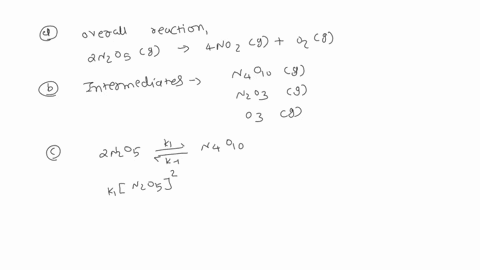 a) overall reaction,
2N2O5 (g) → 4NO2 (g) + O2 (g)
b) Intermediates → N4O10 (g)
N2O3 (g)
O3 (g)
c) 2N2O5 ⇌ N4O10
k1
k-1
k1[N2O5]^2